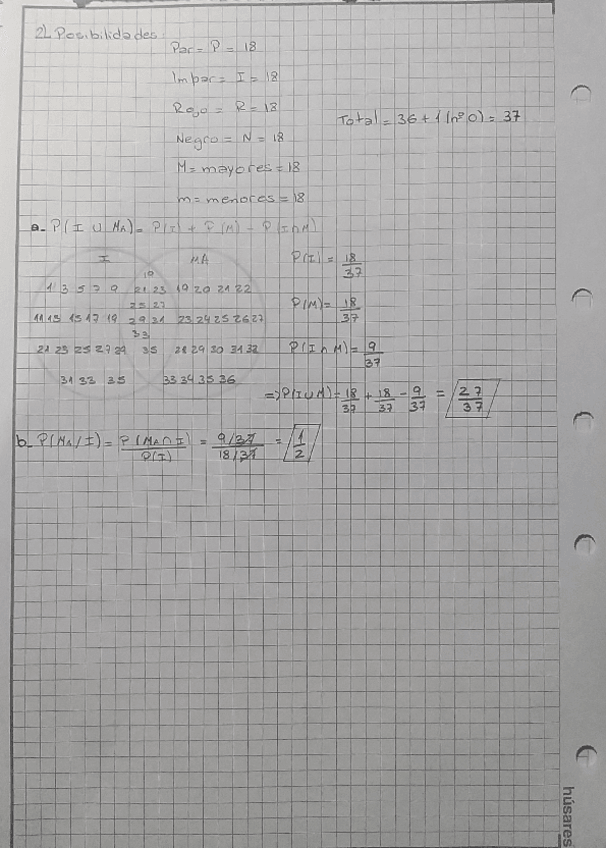 2) Posibilidades
Par = P = 18
Impar = I = 18
Rojo = R = 18
Total = 36 + 1 (nº 0) = 37
Negro = N = 18
M = mayores = 18
m = menores = 18
a- P(I ∪ MA) = P(I) + P(M) - P(I∩M)
I MA
P(I) = 18/37
19
1 3 5 7 9 21 23 19 20 21 22
25 27
P(M) = 18/37
11 13 15 17 19 29 31 23 24 25 26 27
33
21 23 25 27 29 35 28 29 30 31 32
P(I ∩ M) = 9/37
31 33 35 33 34 35 36
=> P(I∪M) = 18/37 + 18/37 - 9/37 = 27/37
b- P(MA/I) = P(MA∩I)/P(I) = 9/37 / 18/37 = 1/2
húsares